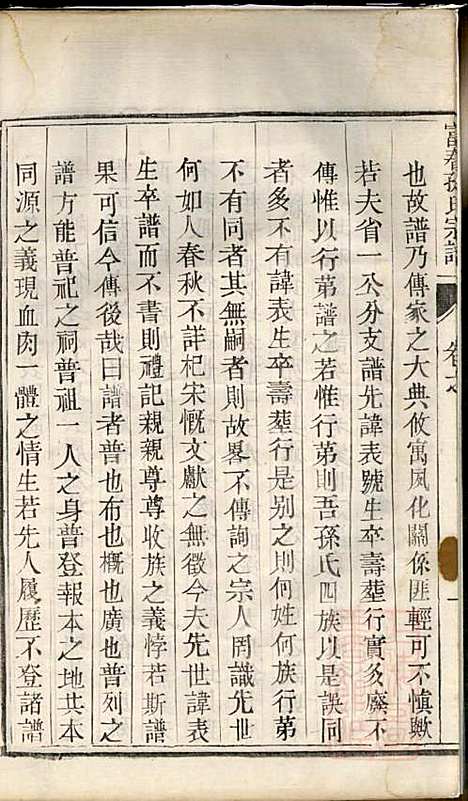 富春孫氏宗譜 卷之 一
也故譜乃傳家之大典攸寓風化關係匪輕可不慎歟
若夫省一公分支譜先諱表號生卒壽塟行實多廢不
傳惟以行第譜之若惟行第則吾孫氏四族以是誤同
者多不有諱表生卒壽塟行是別之則何姓何族行第
不有同者其無嗣者則故畧不傳詢之宗人罔識先世
何如人春秋不詳杞宋慨文獻之無徵今夫先世諱表
生卒譜而不書則禮記親親尊尊收族之義悖若斯譜
果可信今傳後哉曰譜者普也布也概也廣也普列之
譜方能普祀之祠普祖一人之身普登報本之地其本
同源之義現血肉一體之情生若先人履歷不登諸譜